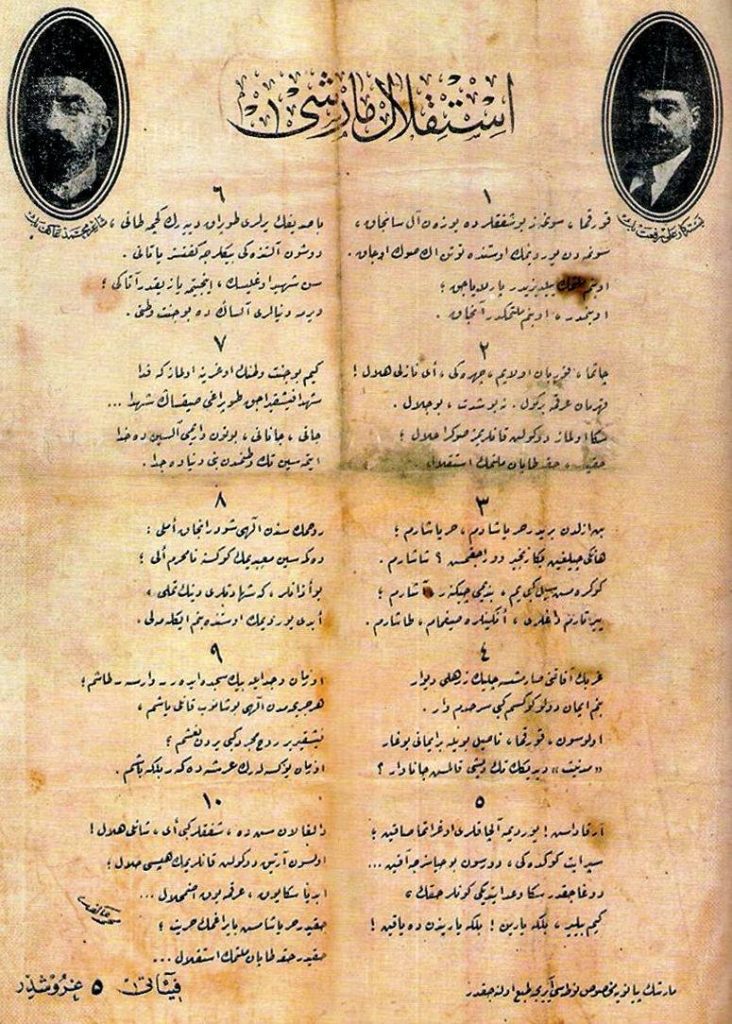 استقلال مارشی
بسته‌كار علی رفعت بك
شاعر محمد عاكف بك
١
قورقما، سونمز بو شفقلرده یوزن آل سانجاق،
سونمه‌دن یوردیمك اوستنده توتن اك صوك اوجاق.
او بنم ملتمك ییلدیزیدر پارلایاجق؛
او بنمدر، او بنم ملتمكدر آنجاق.
٢
چاتما، قوربان اولایم، چهره‌كی، ای نازلی هلال!
قهرمان عرقمه بر كول. نه بو شدت، بو جلال.
سكا اولماز دوكولن قانلریمز صوكرا حلال؛
حقیدر، حقه طاپان ملتمك استقلال.
٣
بن ازلدن بریدر حر یاشادم، حر یاشارم؛
هانكی چیلغین بكا زنجیر ووراجقمش؟ شاشارم.
كوكره‌مش سیل كبی یم، بندیمی چیكنر، آشارم؛
ییرتارم داغلری، انكینلره صیغمام، طاشارم.
٤
غربك آفاقنی صارمشسه چلیك زرهلی دیوار
بنم ایمان دولو كوكسم كبی سرحدم وار.
اولوسون، قورقما، ناصل بویله بر ایمانی بوغار
«مدنیت» دیدیكك تك دیشی قالمش جاناوار؟
٥
آرقاداش! یوردیمه آلچاقلری اوغراتما صاقین؛
سپر ایت كوكده‌كی، دورسون بو حیاسزجه آقین...
دوغاجقدر سكا وعد ایتدیكی كونلر حقك،
كیم بیلیر، بلكه یارین! بلكه یاریندن ده یاقین!
٦
باصدیغك یرلری طوپراق دییه‌رك كچمه طانی،
دوشون آلتنده‌كی بیكلرجه كفنسز یاتانی.
سن شهید اوغلیسك، اینجیتمه یازیقدر آتاكی؛
ویرمه دنیالری آلساك ده بو جنت وطنی.
٧
كیم بو جنت وطنك اوغرینه اولماز كه فدا
شهدا فیشقیراجق طوپراغی صیقساڭ شهدا...
جانی، جانانی، بوتون واریمی آلسین ده خدا
ایتمه‌سین تك وطنمدن بنی دنیاده جدا.
٨
روحمك سندن الهی شودر آنجاق أملی:
ده‌كمه‌سین معبدیمك كوكسنه نامحرم ألی؛
بو أذانلر، كه شهادتلری دینك تملی،
أبدی یوردیمك اوستنده بنم ایكله‌ملی.
٩
او زمان وجد ایله بیك سجده ایدر ـ وارسه ـ طاشم؛
هر جریحه‌مدن الهی بوشانوب قانلی یاشم،
فیشقیریر روح مجرد كبی یردن نعشم؛
او زمان یوكسله‌رك عرشه ده‌كر بلكه باشم.
١٠
دالغالان سن ده، شفقلر كبی أی، شانلی هلال!
اولسون آرتیق دوكولن قانلریمك هپسی حلال؛
ابدیا سكا یوق، عرقمه یوق اضمحلال...
حقیدر حر یاشامش بایراغمك حریت؛
حقیدر حقه طاپان ملتمك استقلال...
مارشك پیانویه مخصوص نوطه‌سی آیریجه طبع اولنه‌جقدر
فیئاتی ٥ غروشدر